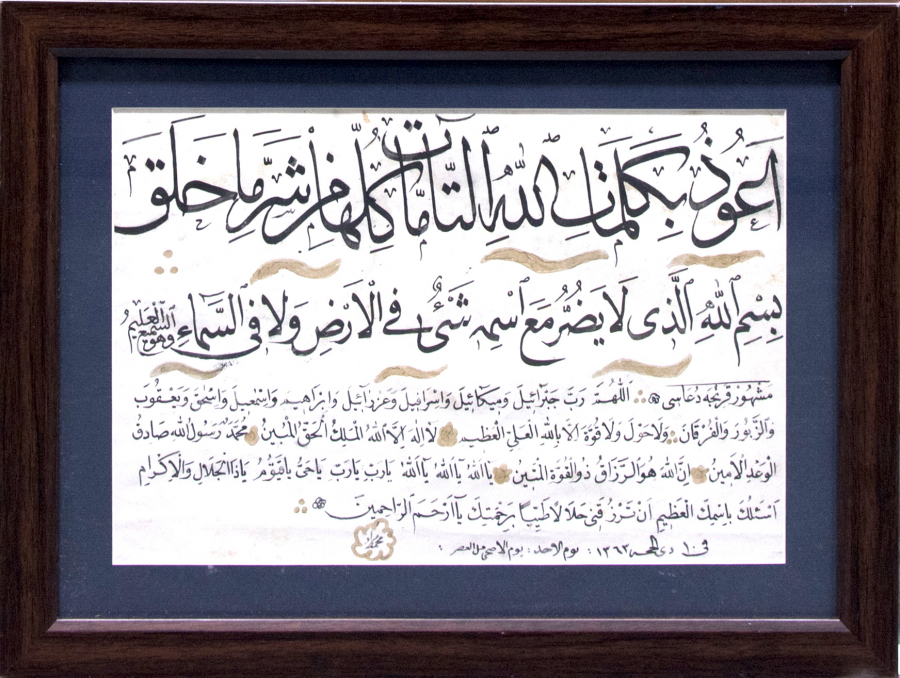 اَعُوذُ بِكَلِمَاتِ اللّٰهِ التَّامَّاتِ كُلِّهَا مِنْ شَرِّ مَا خَلَقَ
بِسْمِ اللّٰهِ الَّذِى لَا يَضُرُّ مَعَ اسْمِهِ شَىْءٌ فِى الْاَرْضِ وَلَا فِى السَّمَاءِ وَهُوَ السَّمِيعُ الْعَلِيمُ
مشهور قرنجه دعاسى اَللّٰهُمَّ رَبَّ جَبْرَائِيلَ وَمِيكَائِيلَ وَاِسْرَافِيلَ وَعَزْرَائِيلَ وَاِبْرَاهِيمَ وَاِسْمٰعِيلَ وَاِسْحٰقَ وَيَعْقُوبَ
وَالزَّبُورَ وَالْفُرْقَانَ وَلَا حَوْلَ وَلَا قُوَّةَ اِلَّا بِاللّٰهِ الْعَلِىِّ الْعَظِيمِ لَا اِلٰهَ اِلَّا اللّٰهُ الْمَلِكُ الْحَقُّ الْمُبِينُ مُحَمَّدٌ رَسُولُ اللّٰهِ صَادِقُ
الْوَعْدِ الْاَمِينُ اِنَّ اللّٰهَ هُوَ الرَّزَّاقُ ذُو الْقُوَّةِ الْمَتِينُ يَا اَللّٰهُ يَا اَللّٰهُ يَا اَللّٰهُ يَارَبِّ يَارَبِّ يَارَبِّ يَاحَىُّ يَاقَيُّومُ يَاذَا الْجَلَالِ وَالْاِكْرَامِ
اَسْئَلُكَ بِاسْمِكَ الْعَظِيمِ اَنْ تَرْزُقَنِى حَلَالًا طَيِّبًا بِرَحْمَتِكَ يَا اَرْحَمَ الرَّاحِمِينَ
فى ١٠ ذى الحجه ١٣٦٣ : يوم الاحد : يوم الاضحى قبل العصر :